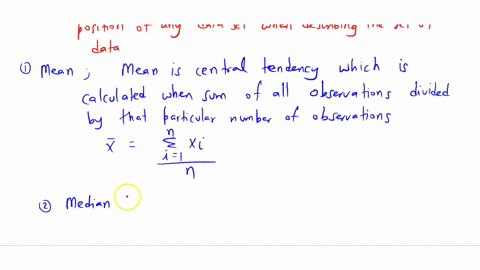 position of any data set when describing the set of
data
① Mean ; Mean is central tendency which is
calculated when sum of all observations divided
by that particular number of observations
x̄ = n Σ i=1 xi / n
② Median